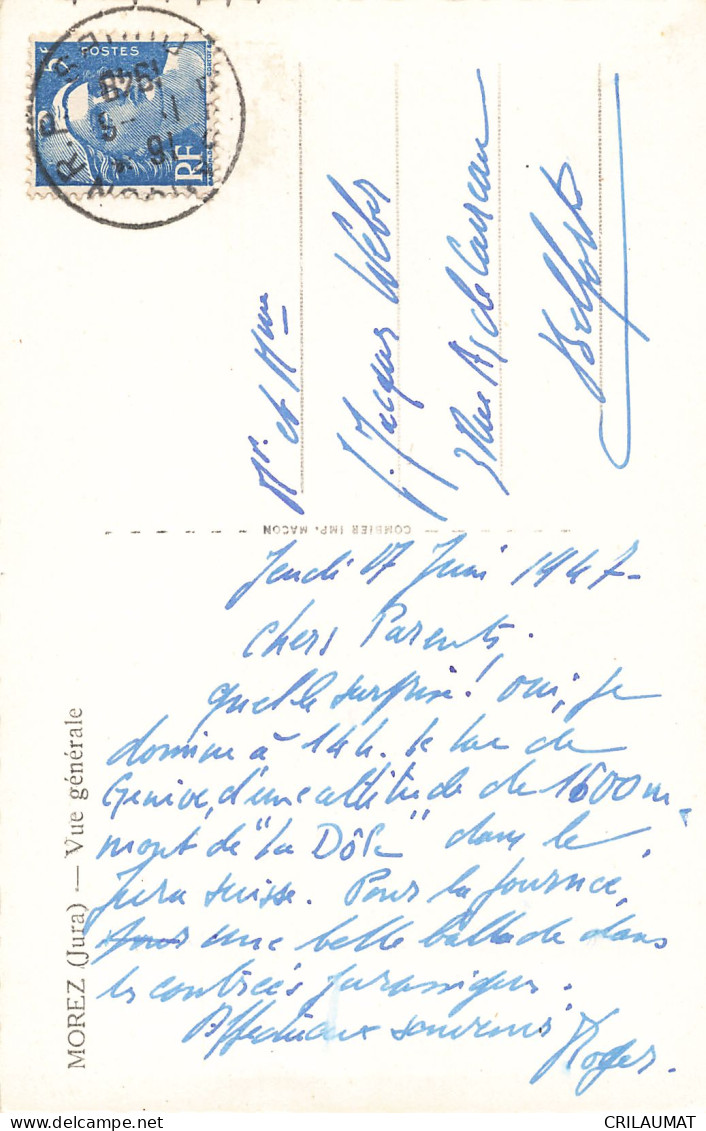 POSTES
5F
RF
R.P.
1948
Mr. et Mme
Jacques Weber
3 Rue As de Carreau
Belfort
COMBIER IMP. MACON
Jeudi 17 Juin 1947-
Chers Parents.
quelle surprise! oui, je
domine à 14h. le lac de
Genève, d'une altitude de 1600 m
mont de "La Dôle" dans le
Jura suisse. Pour la journée,
une belle ballade dans
les contrées jurassiques.
Affectueux souvenirs
Roger.
MOREZ (Jura) — Vue générale
CRILAUMAT